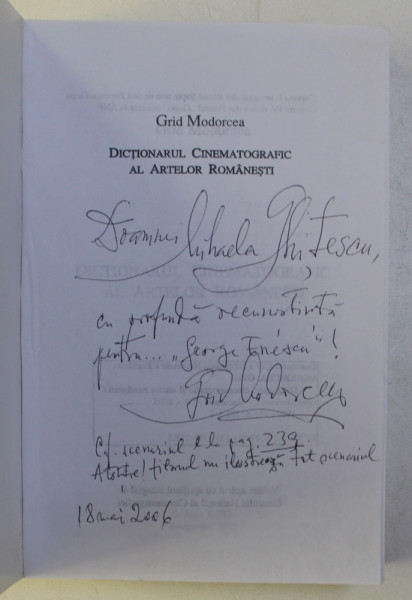 Grid Modorcea
DICȚIONARUL CINEMATOGRAFIC
AL ARTELOR ROMÂNEȘTI
Doamnei Mihaela Ghițescu,
cu profundă recunoștință
pentru... „George Enescu"!
Grid Modorcea
Cf. scenariul de la pag. 239.
filmul nu ilustrează tot scenariul
18 mai 2006